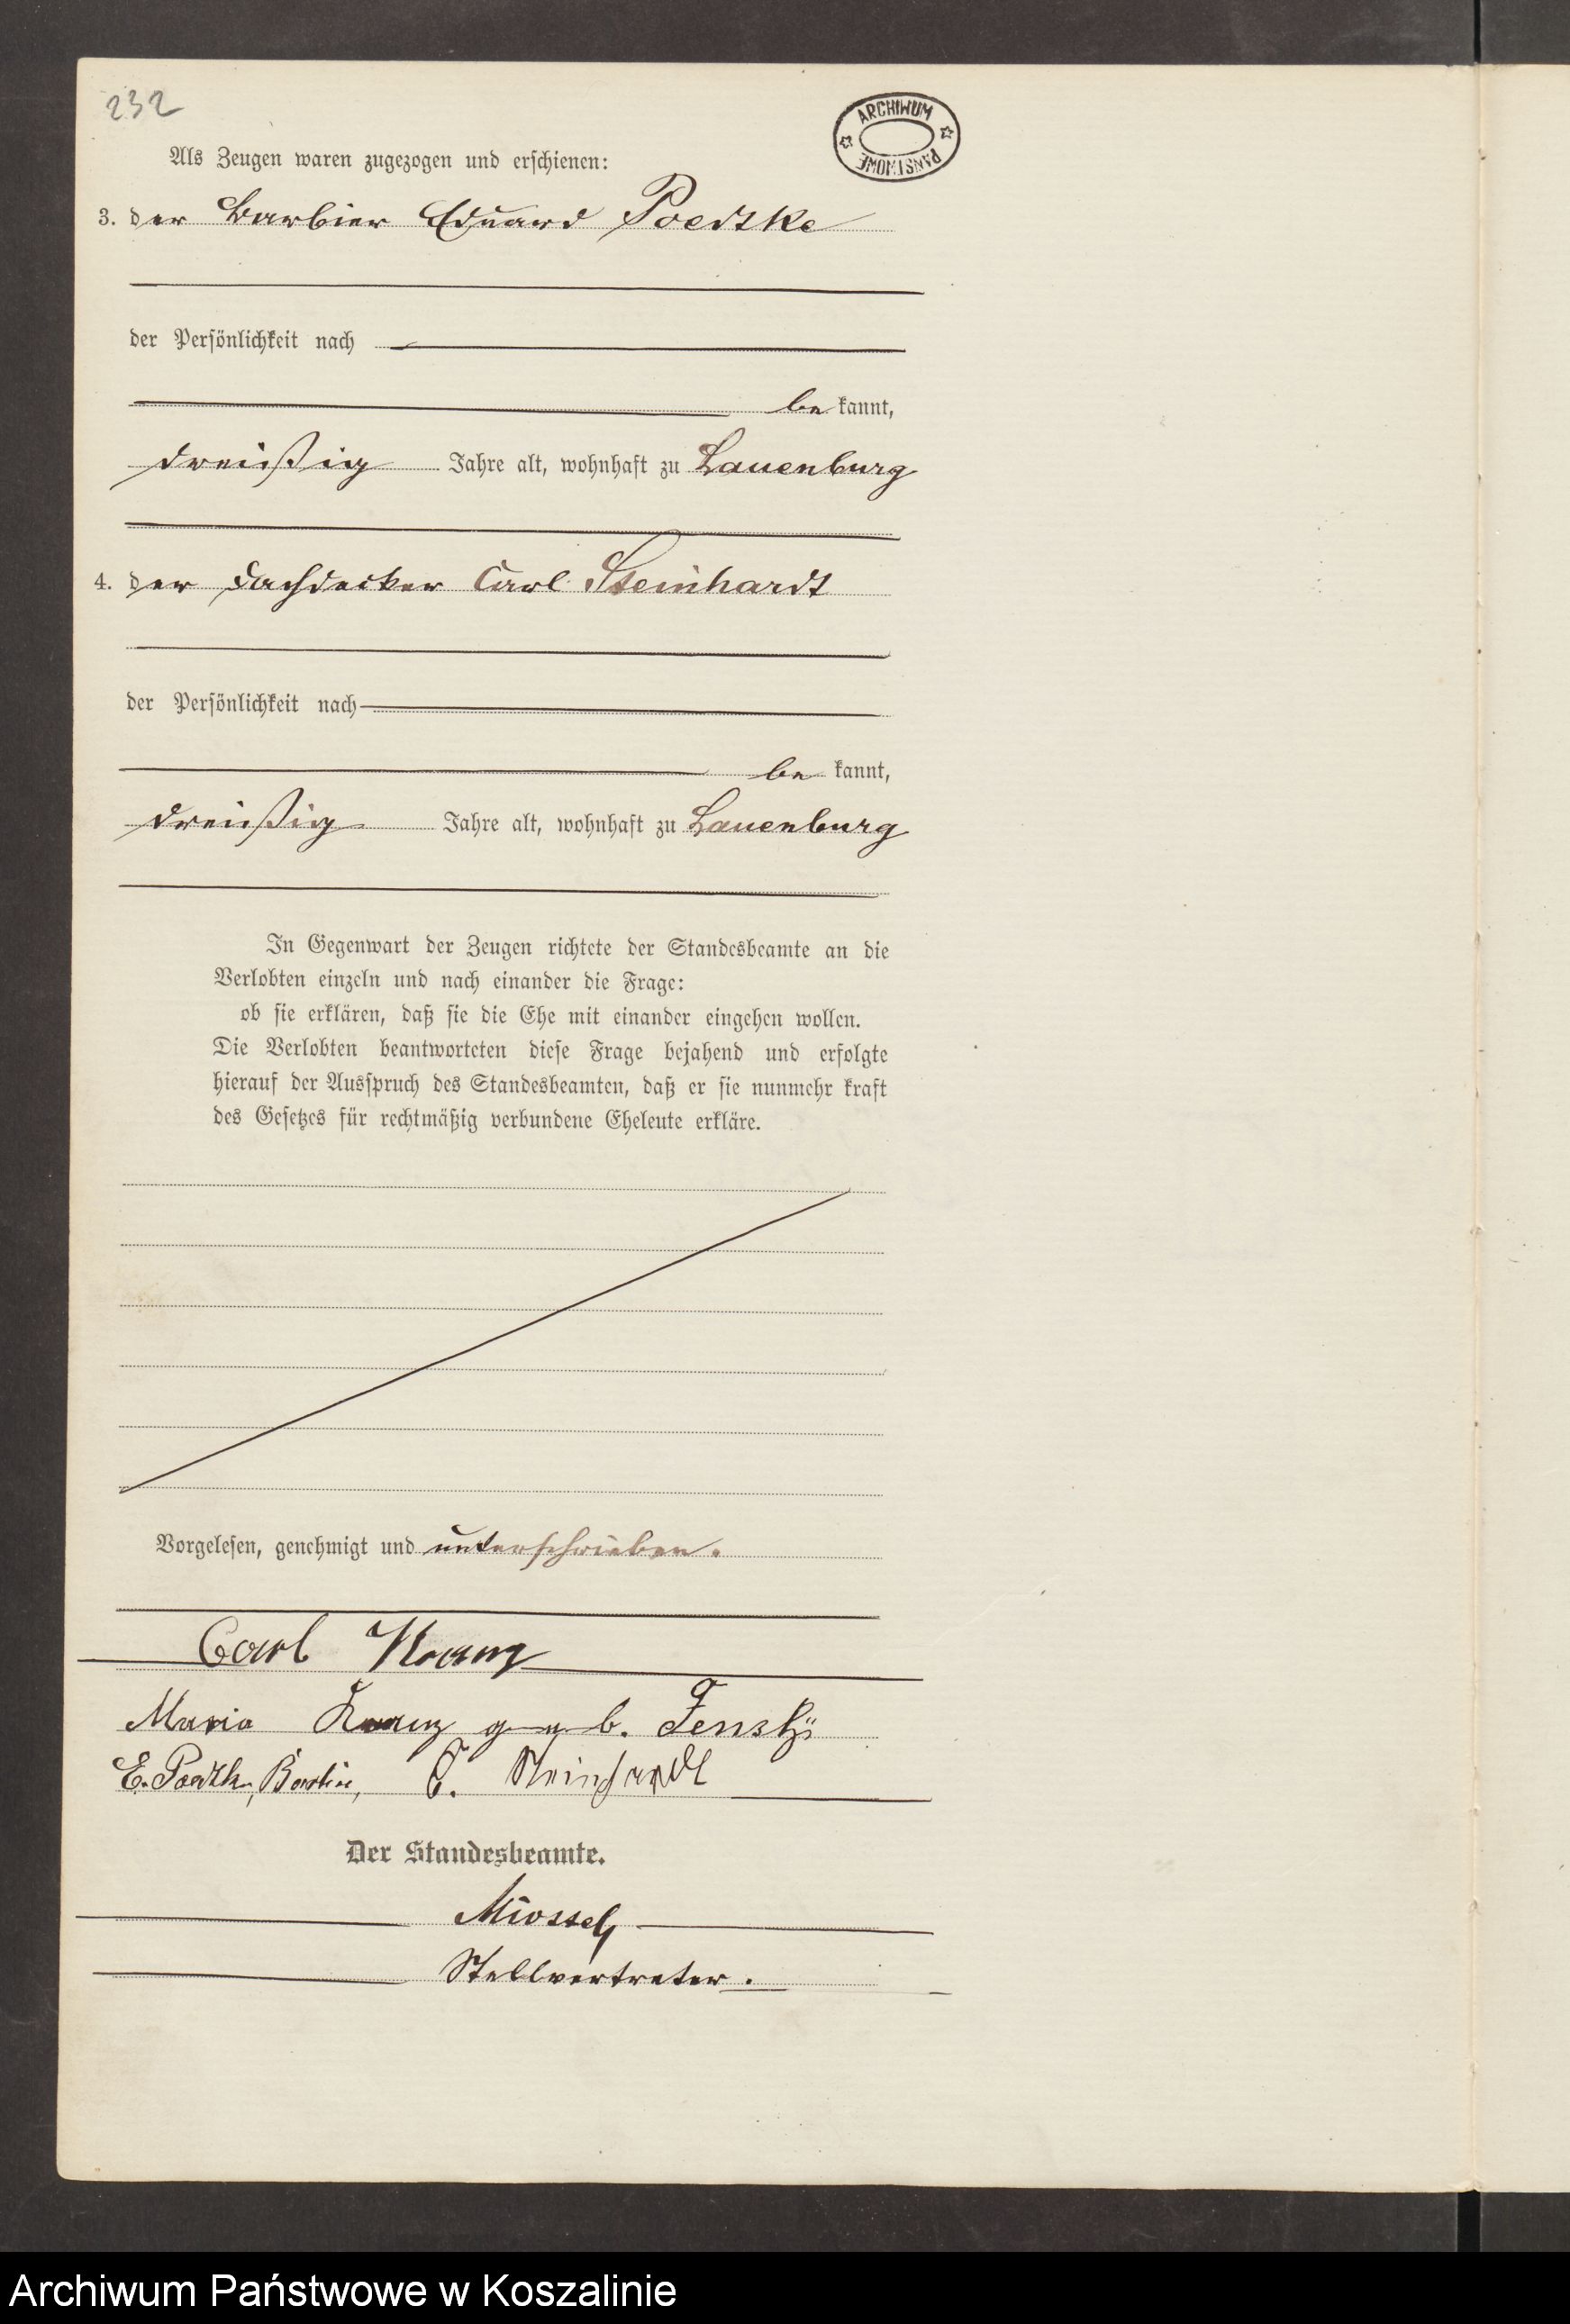 232
ARCHIWUM
PAŃSTWOWE
Als Zeugen waren zugezogen und erschienen:
3. der Barbier Eduard Poedtke
der Persönlichkeit nach
be kannt,
dreißig Jahre alt, wohnhaft zu Lauenburg
4. der Dachdecker Carl Steinhardt
der Persönlichkeit nach
be kannt,
dreißig Jahre alt, wohnhaft zu Lauenburg
In Gegenwart der Zeugen richtete der Standesbeamte an die
Verlobten einzeln und nach einander die Frage:
ob sie erklären, daß sie die Ehe mit einander eingehen wollen.
Die Verlobten beantworteten diese Frage bejahend und erfolgte
hierauf der Ausspruch des Standesbeamten, daß er sie nunmehr kraft
des Gesetzes für rechtmäßig verbundene Eheleute erkläre.
Vorgelesen, genehmigt und unterschrieben.
Carl Kranz
Maria Kranz geb. Fenski
E. Poedtke, C. Steinhardt
Der Standesbeamte.
Stellvertreter.
Archiwum Państwowe w Koszalinie